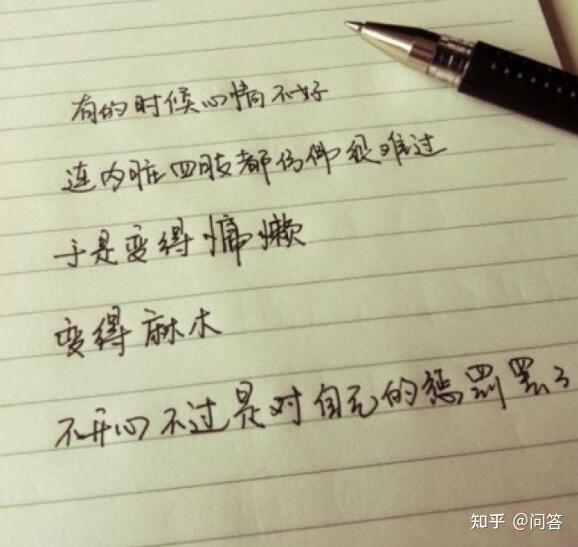 有的时候心情不好
连内脏四肢都仿佛很难过
于是变得慵懒
变得麻木
不开心不过是对自己的惩罚罢了
知乎 @问答